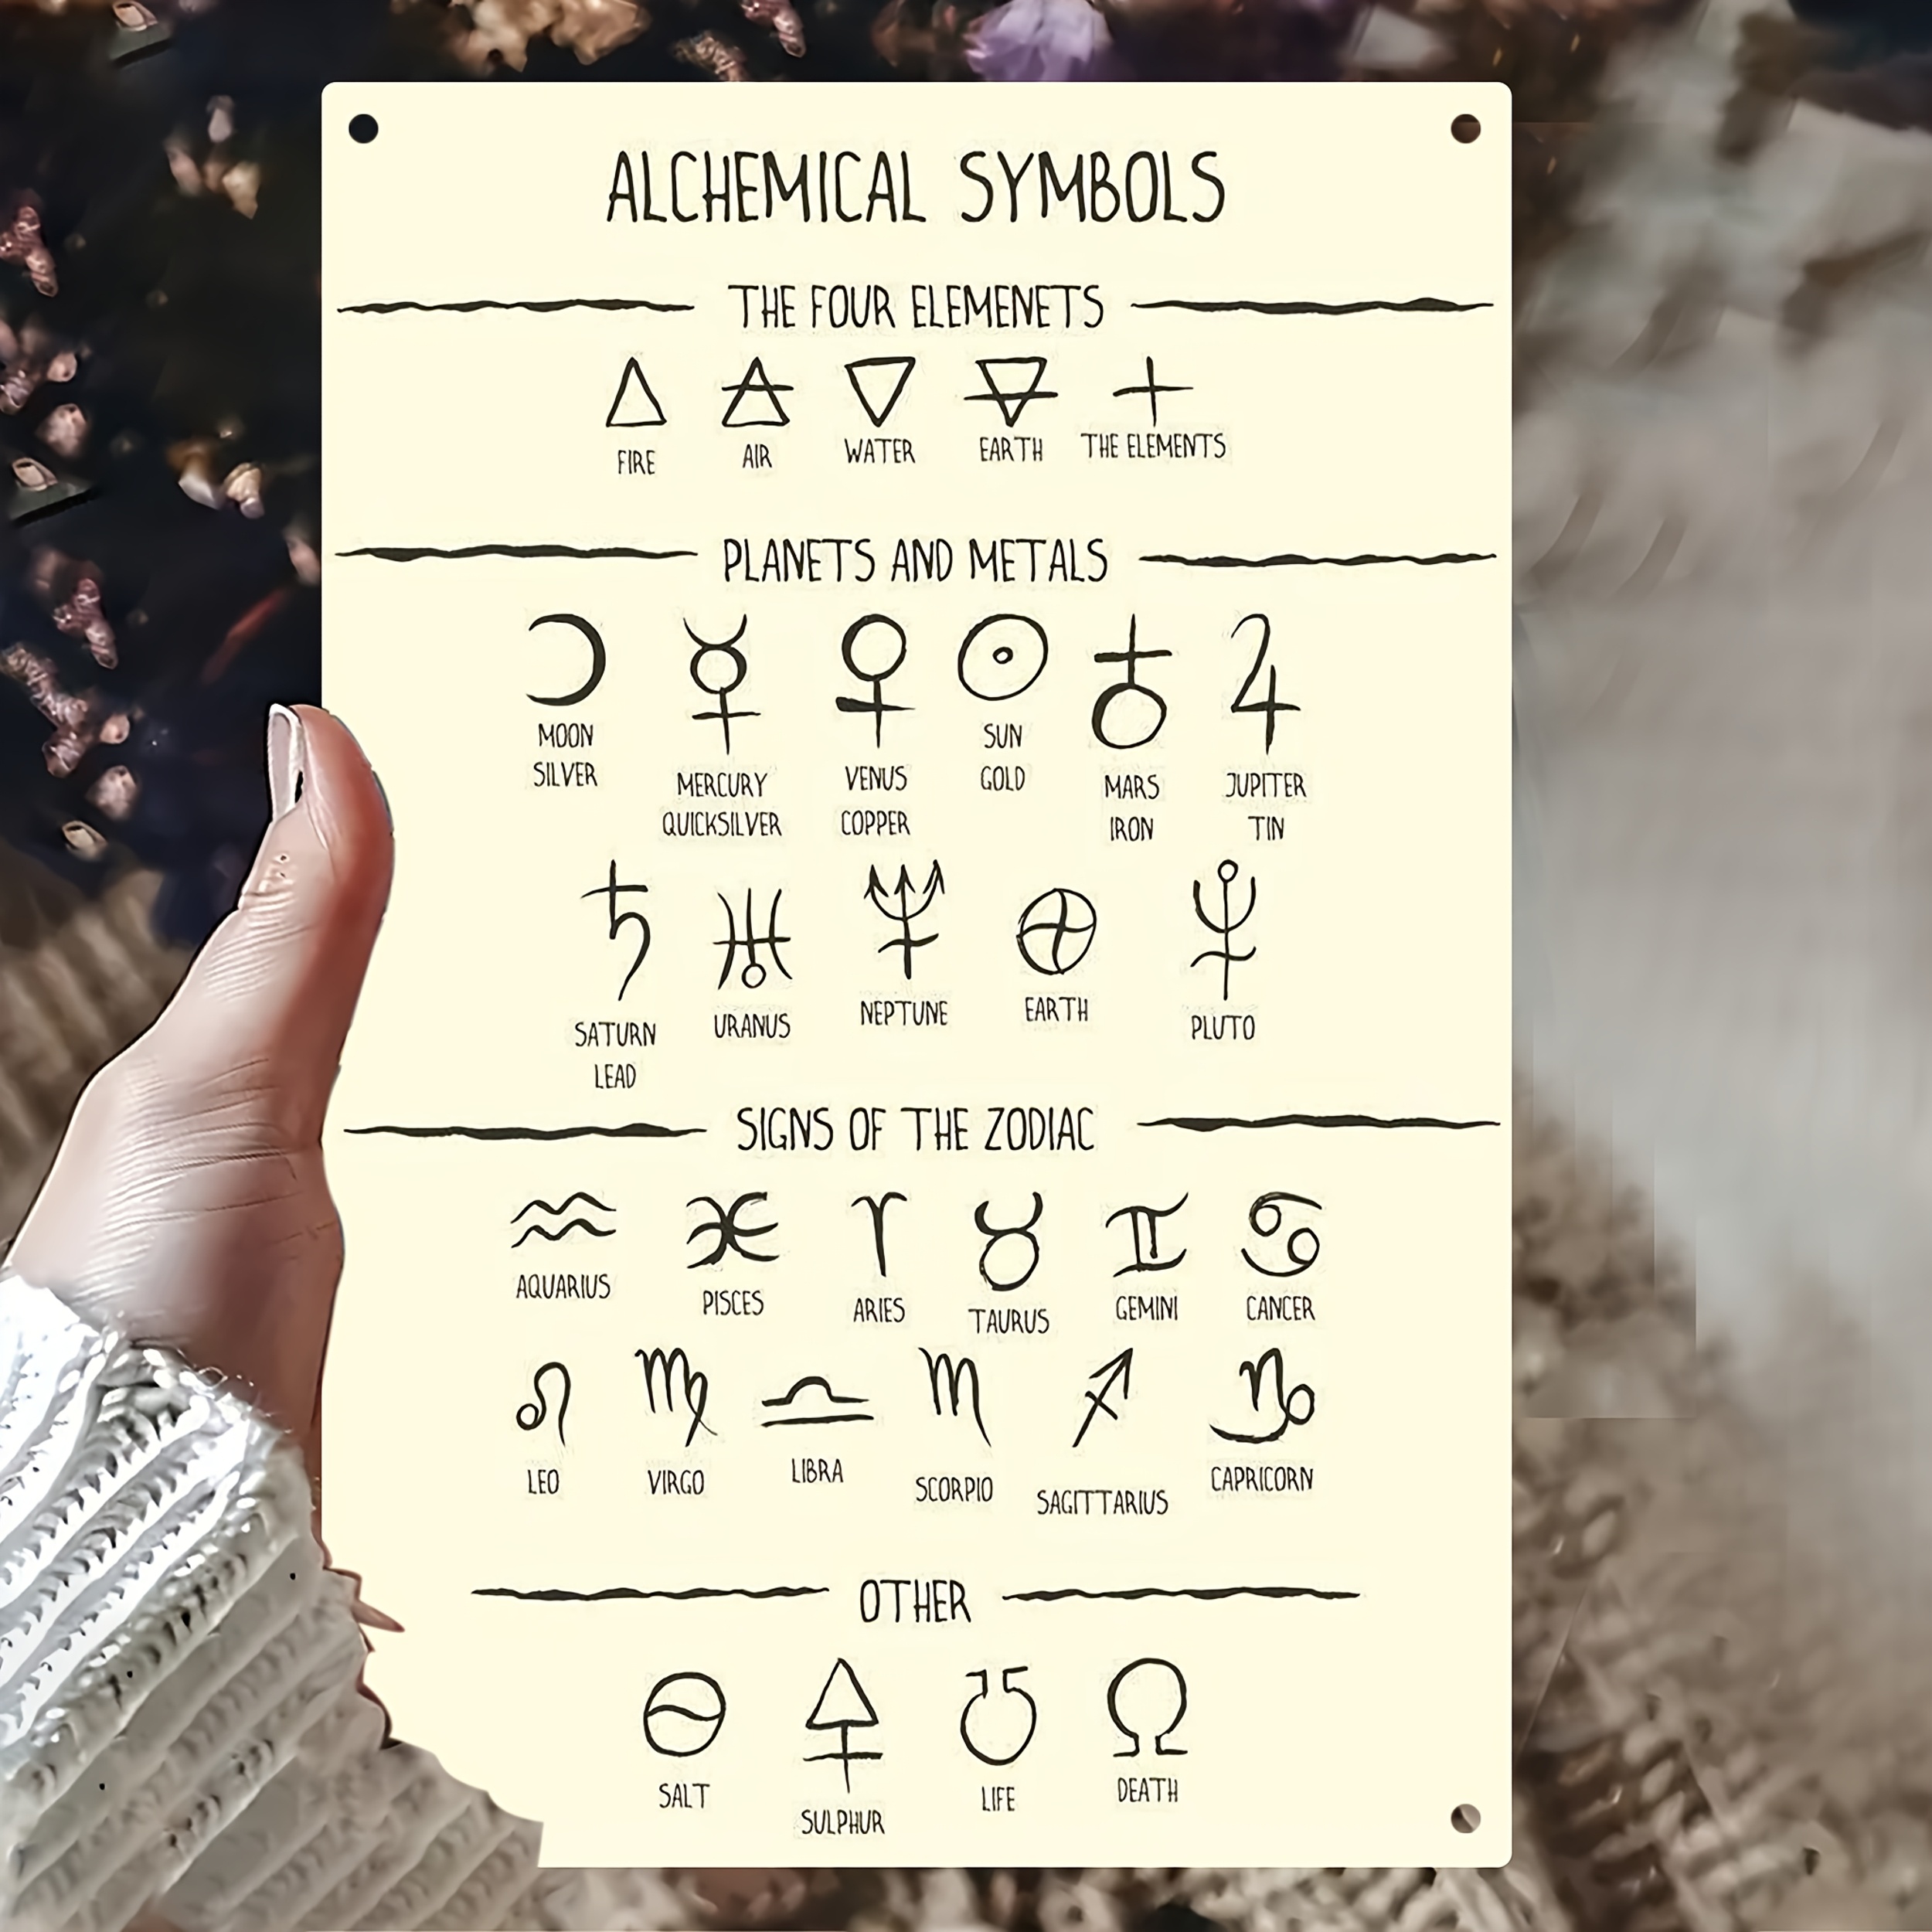 ALCHEMICAL SYMBOLS
THE FOUR ELEMENETS
FIRE AIR WATER EARTH THE ELEMENTS
PLANETS AND METALS
MOON SILVER
MERCURY QUICKSILVER
VENUS COPPER
SUN GOLD
MARS IRON
JUPITER TIN
SATURN LEAD
URANUS
NEPTUNE
EARTH
PLUTO
SIGNS OF THE ZODIAC
AQUARIUS PISCES ARIES TAURUS GEMINI CANCER
LEO VIRGO LIBRA SCORPIO SAGITTARIUS CAPRICORN
OTHER
SALT SULPHUR LIFE DEATH